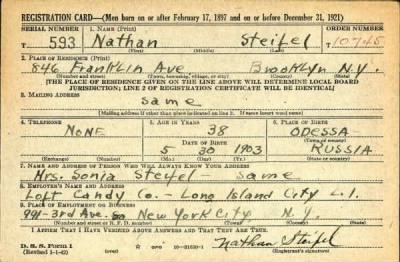 REGISTRATION CARD—(Men born on or after February 17, 1897 and on or before December 31, 1921)
SERIAL NUMBER 1. NAME (Print) ORDER NUMBER
593 Nathan Steifel T10,745
(First) (Middle) (Last)
2. PLACE OF RESIDENCE (Print)
846 Franklin Ave Brooklyn N.Y.
(Number and street) (Town, township, village, or city) (County) (State)
[THE PLACE OF RESIDENCE GIVEN ON THE LINE ABOVE WILL DETERMINE LOCAL BOARD
JURISDICTION; LINE 2 OF REGISTRATION CERTIFICATE WILL BE IDENTICAL]
3. MAILING ADDRESS
same
[Mailing address if other than place indicated on line 2. If same insert word same]
4. TELEPHONE 5. AGE IN YEARS 6. PLACE OF BIRTH
NONE 38 ODESSA
DATE OF BIRTH (Town or county)
5 30 1903 RUSSIA
(Exchange) (Number) (Mo.) (Day) (Yr.) (State or country)
7. NAME AND ADDRESS OF PERSON WHO WILL ALWAYS KNOW YOUR ADDRESS
Mrs. Sonia Steifel — same
8. EMPLOYER'S NAME AND ADDRESS
Loft Candy Co — Long Island City L.I.
9. PLACE OF EMPLOYMENT OR BUSINESS
991-3rd Ave. New York City N.Y.
(Number and street or R. F. D. number) (Town) (County) (State)
I AFFIRM THAT I HAVE VERIFIED ABOVE ANSWERS AND THAT THEY ARE TRUE.
D. S. S. Form 1
(Revised 1-1-42) GPO 16—21630-1 Nathan Steifel
(Registrant's signature)